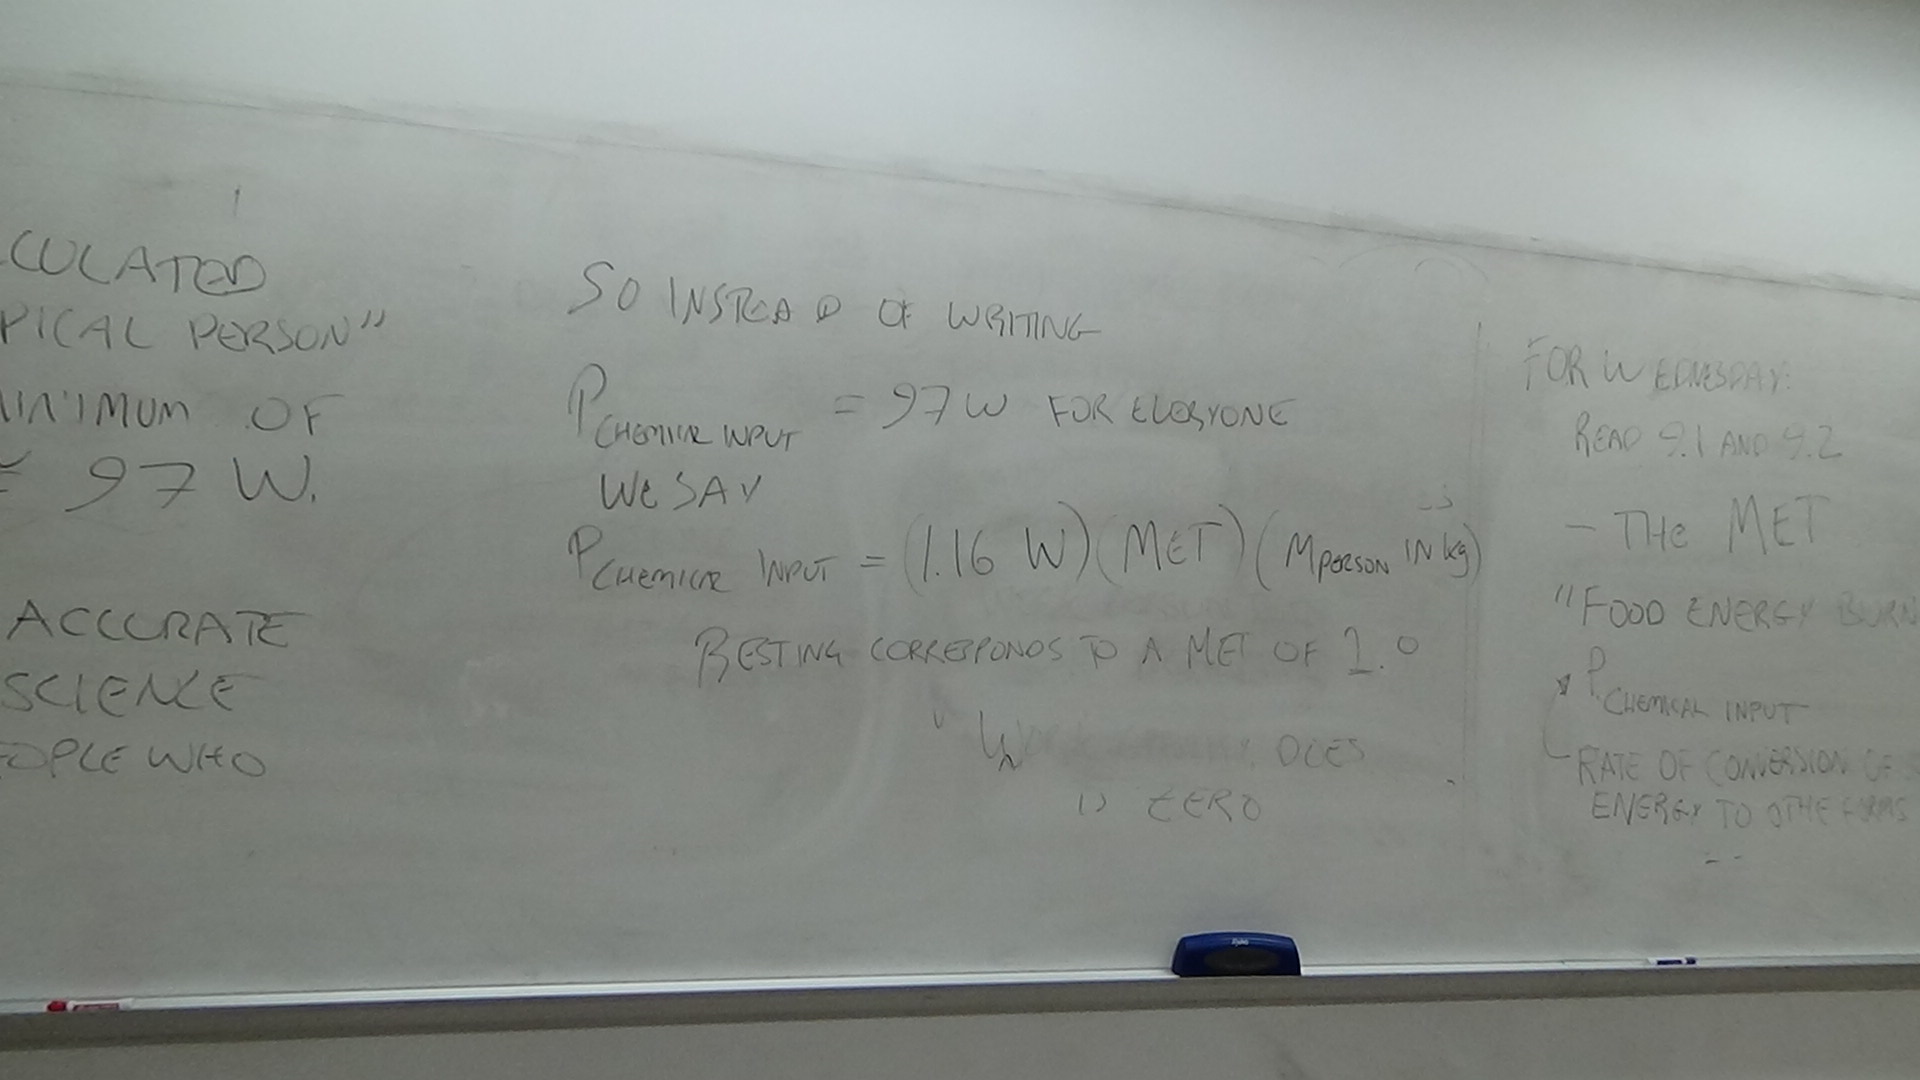 CULATED
PICAL PERSON"
MINIMUM OF
= 97 W.
ACCURATE
SCIENCE
OPLE WHO
SO INSTEAD OF WRITING
P CHEMICAL INPUT = 97 W FOR EVERYONE
WE SAY
P CHEMICAL INPUT = (1.16 W)(MET)(M PERSON IN kg)
RESTING CORRESPONDS TO A MET OF 1.0
DOES
ZERO
FOR WEDNESDAY:
READ 9.1 AND 9.2
- THE MET
"FOOD ENERGY BURN
P CHEMICAL INPUT
RATE OF CONVERSION OF
ENERGY TO OTHE FORMS